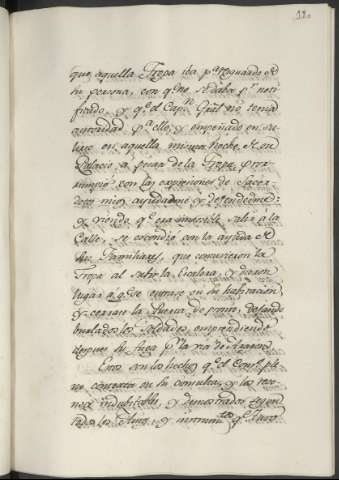 que, aquella Tropa iba pª resguardo de
su persona, con qe no se daba pr noti-
ficado, y qe el Capn Gral no tenia
autoridad pª ello; y empeñado en sa-
lirse en aquella misma Noche de su
Palacio à pesar de la Tropa, pror-
rumpió con las expresiones de Sacer-
dotes mios ayudadme y defendedme:
y viendo qe era imposible salir à la
Calle, se escondió con la ayuda de
sus Familiares, que contuvieron la
Tropa al subir la Escalera, y dieron
lugar à qe se entrase en su habitacion
y cerrase la Puerta de pronto, dejando
burlados los Soldados, emprendiendo
despues su fuga pr la via de Aragon.
Estos son los hechos qe el Consejo ple-
no consulta en su consulta, y los reco-
noce indubitables, y demostrados
los Autos, y instrumtos qe